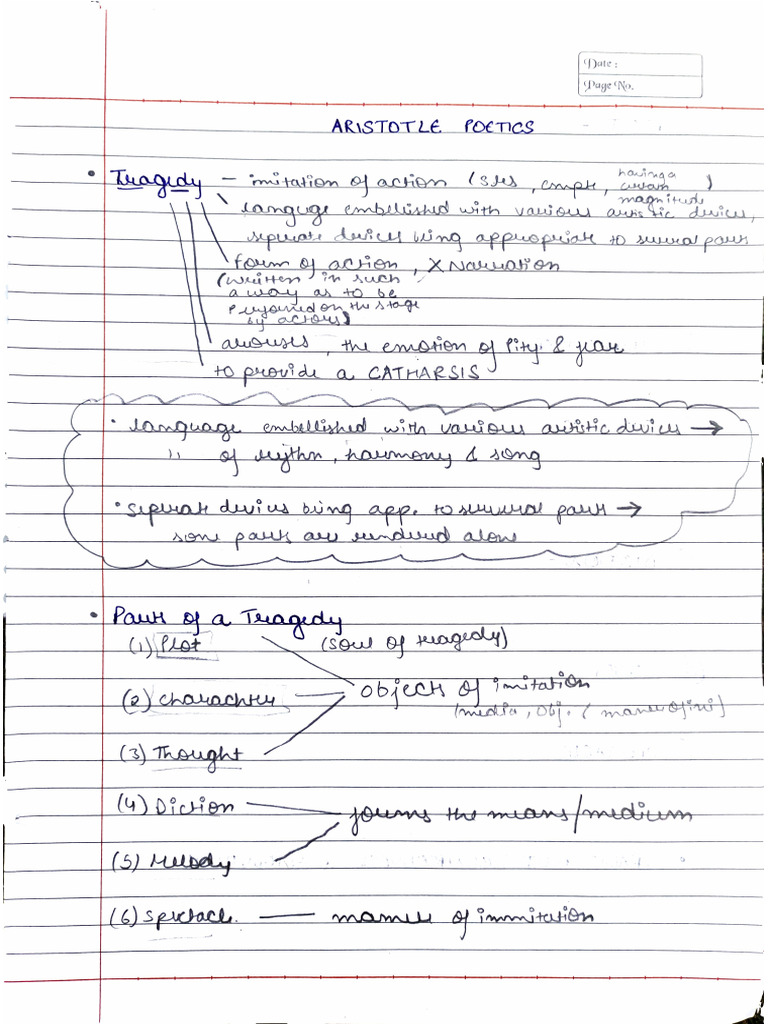 Date :
Page No.
ARISTOTLE POETICS
• Tragedy – imitation of action (Sres, cmpte, having a certain magnitude)
language embellished with various artistic devices,
seperate devices being appropriate to several parts
form of action, X Narration
(written in such
a way as to be
performed on the stage
by actors)
arouses, the emotion of Pity & fear
to provide a CATHARSIS
• language embellished with various artistic devices →
" of rhythm, harmony & song
• seperate devices being app. to several parts →
some parts are rendered alone
• Parts of a Tragedy
(1) Plot (soul of tragedy)
(2) Charachter objects of imitation
(media, obj. ( manner of imi)
(3) Thought
(4) Diction forms the means/medium
(5) Melody
(6) Spectacle manner of immitation